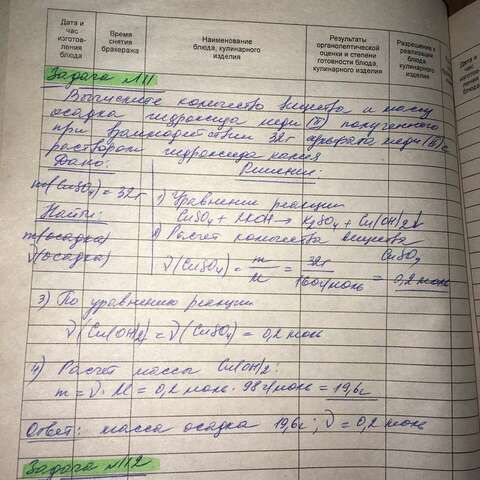 Дата и час изготовления блюда
Время снятия бракеража
Наименование блюда, кулинарного изделия
Результаты органолептической оценки и степени готовности блюда, кулинарного изделия
Разрешение к реализации блюда, кулинарного изделия
Дата и час
Задача №11
Вычислите количество вещества и массу
осадка гидроксида меди (II) полученного
при взаимодействии 32г сульфата меди (II) с
раствором гидроксида калия
Дано: Решение:
m(CuSO4) = 32г
1) Уравнение реакции
Найти: CuSO4 + 2KOH → K2SO4 + Cu(OH)2↓
m(осадка) 2) Расчет количества вещества
ν(осадка) CuSO4
ν(CuSO4) = m/M = 32г/160г/моль = 0,2 моль
3) По уравнению реакции
ν(Cu(OH)2) = ν(CuSO4) = 0,2 моль
4) Расчет массы Cu(OH)2:
m = ν · M = 0,2 моль · 98 г/моль = 19,6г
Ответ: масса осадка 19,6г; ν = 0,2 моль
Задача №12